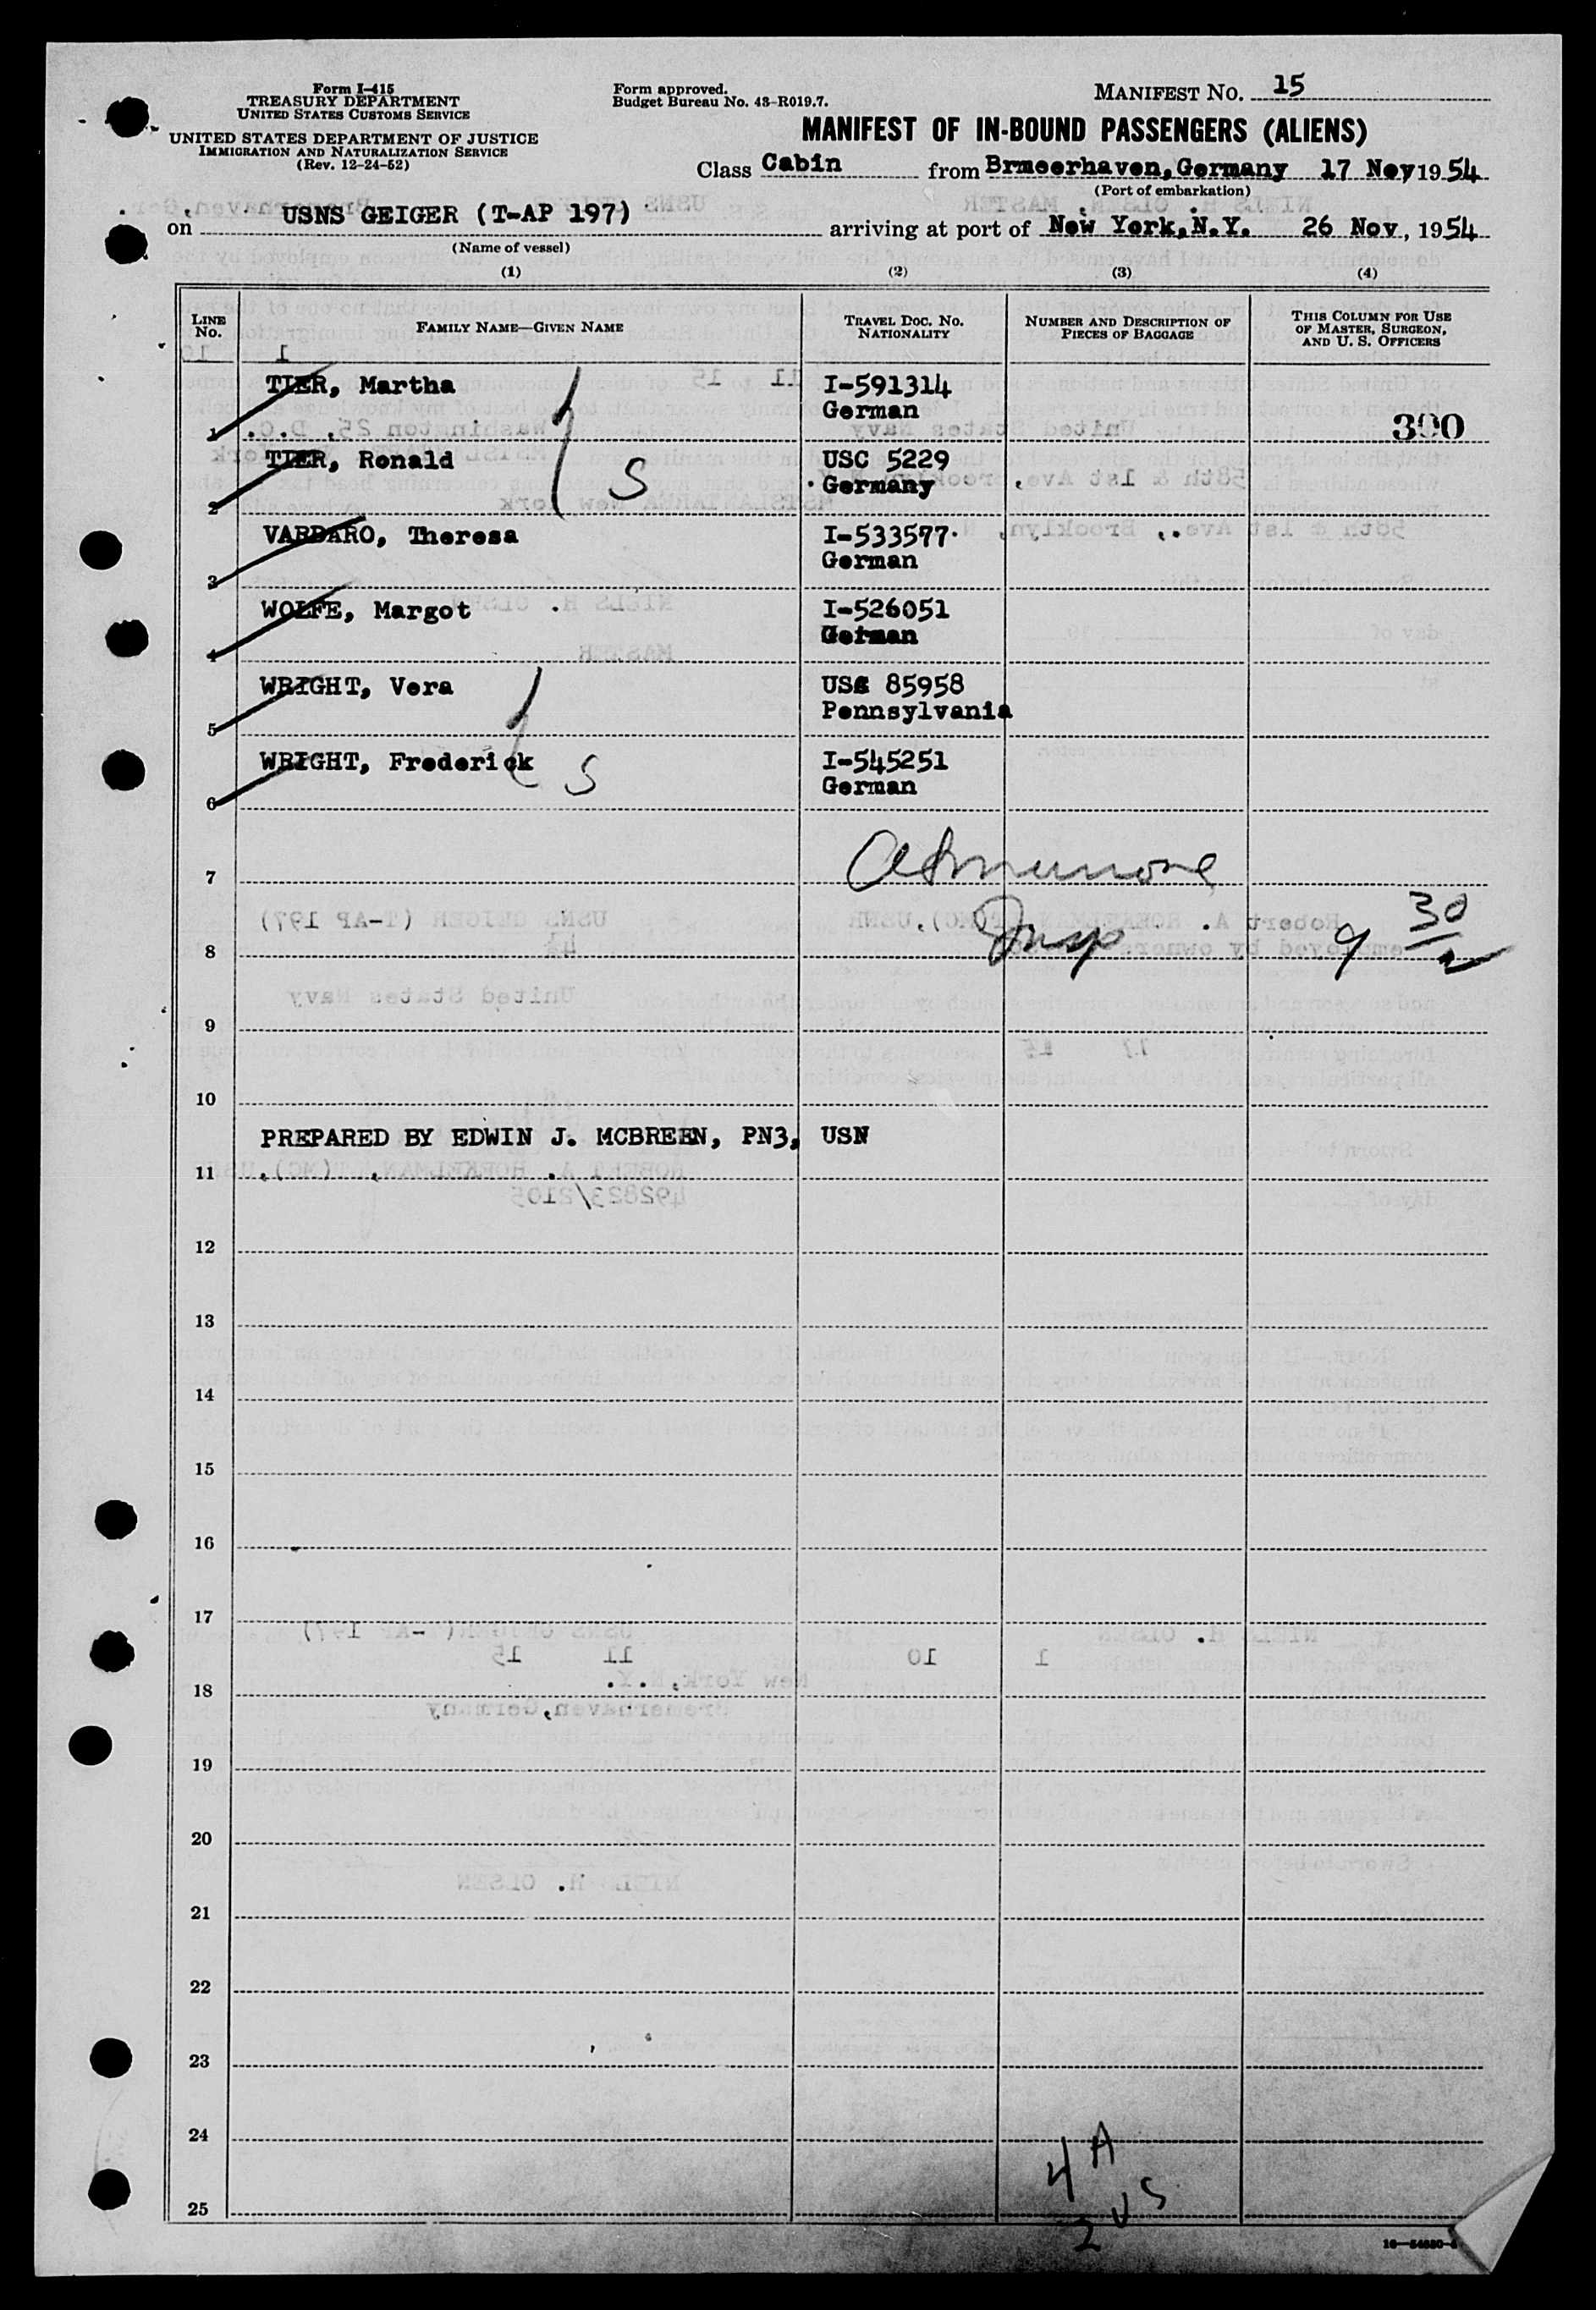 Form I-415
TREASURY DEPARTMENT
UNITED STATES CUSTOMS SERVICE
UNITED STATES DEPARTMENT OF JUSTICE
IMMIGRATION AND NATURALIZATION SERVICE
(Rev. 12-24-52)
Form approved.
Budget Bureau No. 43-R019.7.
MANIFEST NO. 15
MANIFEST OF IN-BOUND PASSENGERS (ALIENS)
Class Cabin from Brmeerhaven, Germany 17 Nov 1954
(Port of embarkation)
on USNS GEIGER (T-AP 197) arriving at port of New York, N.Y. 26 Nov, 1954
(Name of vessel)
(1) (2) (3) (4)
LINE NO. FAMILY NAME—GIVEN NAME TRAVEL DOC. NO. NATIONALITY NUMBER AND DESCRIPTION OF PIECES OF BAGGAGE THIS COLUMN FOR USE OF MASTER, SURGEON, AND U. S. OFFICERS
TIER, Martha I-591314
1 German 300
TIER, Ronald USC 5229
2 S Germany
VARDARO, Theresa I-533577
3 German
WOLFE, Margot I-526051
4 German
WRIGHT, Vera USC 85958
5 Pennsylvania
WRIGHT, Frederick I-545251
6 S German
7
8 30
9
10
PREPARED BY EDWIN J. MCBREEN, PN3, USN
11
12
13
14
15
16
17
18
19
20
21
22
23
24
4 A
25
2 US